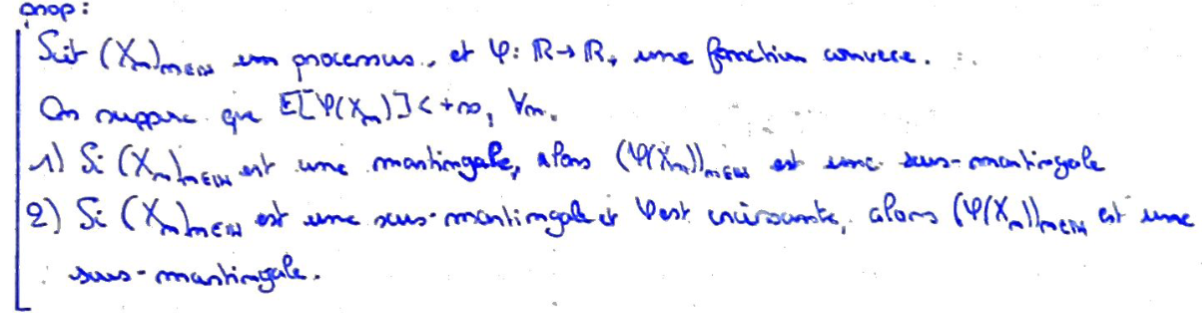 prop :
Soit (Xₙ)ₙ∈ℕ un processus, et φ : ℝ → ℝ₊ une fonction convexe.
On suppose que E[φ(Xₙ)] < +∞, ∀n.
1) Si (Xₙ)ₙ∈ℕ est une martingale, alors (φ(Xₙ))ₙ∈ℕ est une sous-martingale
2) Si (Xₙ)ₙ∈ℕ est une sous-martingale et φ est croissante, alors (φ(Xₙ))ₙ∈ℕ est une
sous-martingale.